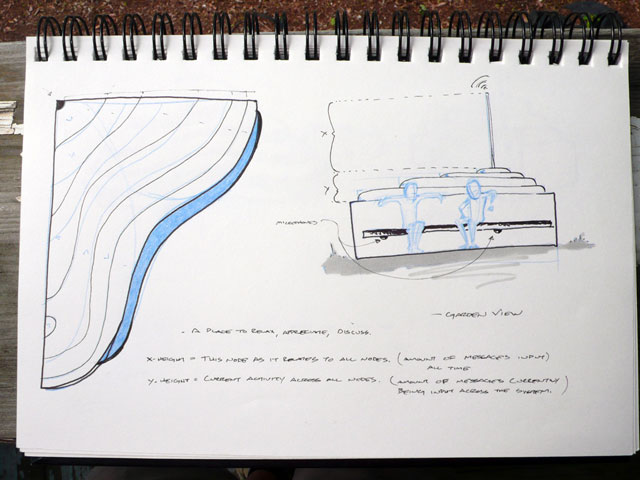 X
Y
MICROPHONES
- GARDEN VIEW
- A PLACE TO RELAX, APPRECIATE, DISCUSS.
X-HEIGHT = THIS NODE AS IT RELATES TO ALL NODES. (AMOUNT OF MESSAGE'S INPUT)
ALL TIME
Y-HEIGHT = CURRENT ACTIVITY ACROSS ALL NODES. (AMOUNT OF MESSAGE'S CURRENTLY
BEING INPUT ACROSS THE SYSTEM.)